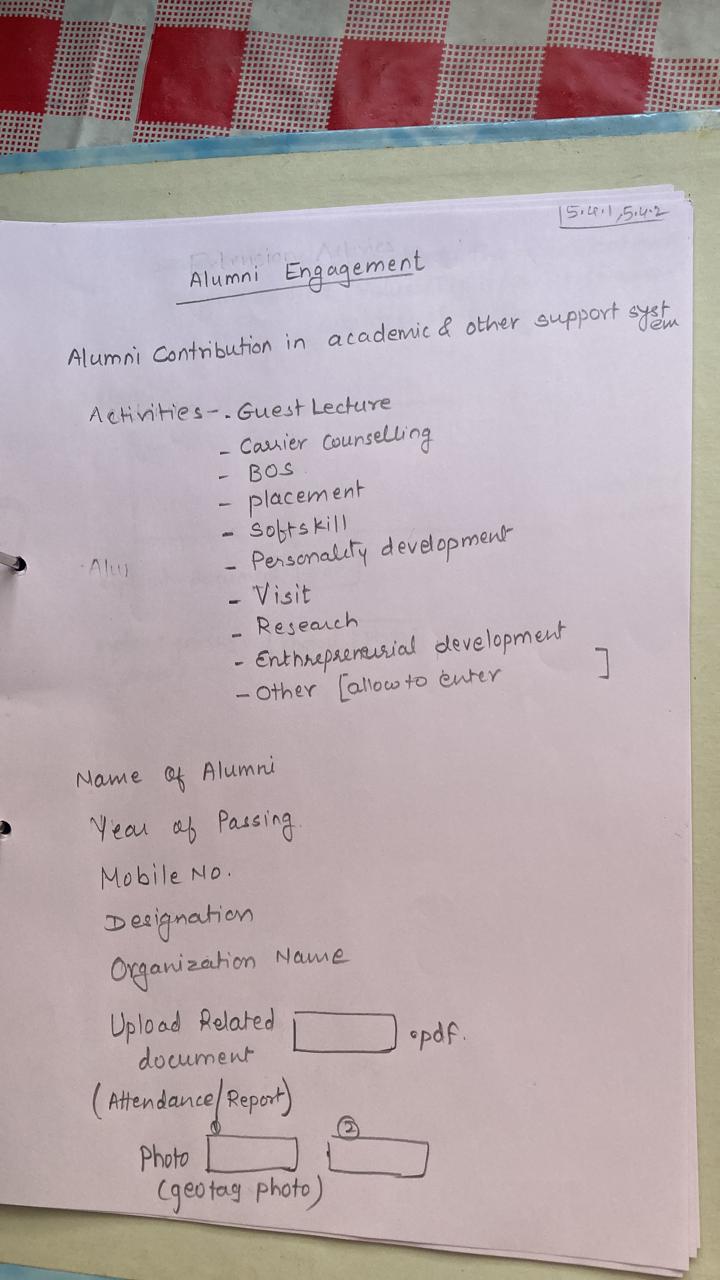 5.4.1, 5.4.2
Alumni Engagement
Alumni Contribution in academic & other support system
Activities - . Guest Lecture
- Carrier Counselling
- BOS
- placement
- Softskill
- Personality development
- Visit
- Research
- Enthrepreneurial development
- Other [allow to enter ]
Name of Alumni
Year of Passing
Mobile No.
Designation
Organization Name
Upload Related .pdf.
document
(Attendance/Report)
1 2
Photo
(geotag photo)